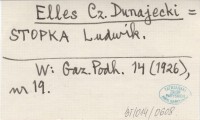 Elles Cz. Dunajecki =
STOPKA Ludwik.
W: Gaz. Podh. 14 (1926),
nr 19.